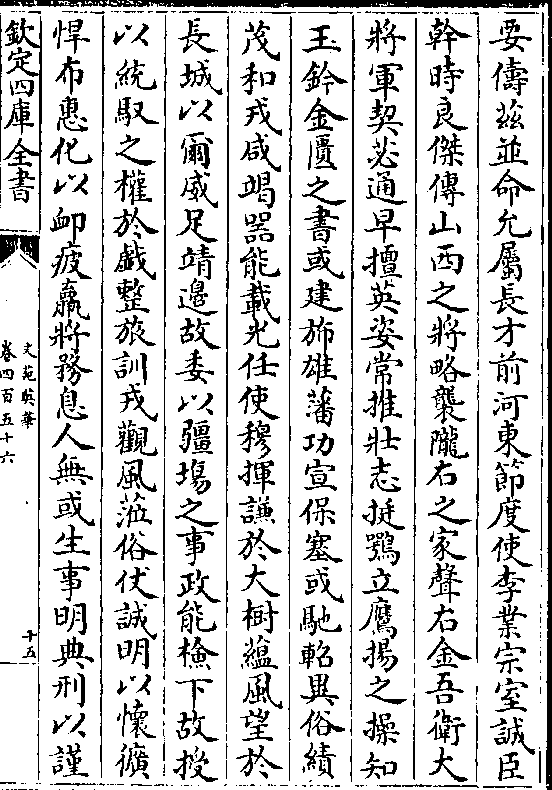 要儔茲並命允屬長才前河東節度使李業宗室誠臣
幹時良傑傳山西之將略襲隴右之家聲右金吾衛大
將軍契苾通早擅英姿常推壯志挺鶚立鷹揚之操知
玉鈐金匱之書或建斾雄藩功宣保塞或馳軺異俗績
茂和戎咸竭器能載光任使穆揮謙於大樹蘊風望於
長城以爾威足靖邊故委以疆埸之事政能檢下故授
以統馭之權於戲整旅訓戎觀風蒞俗仗誠明以懷獷
悍布惠化以䘏疲羸將務息人無或生事明典刑以謹
欽定四庫全書
文苑英華
卷四百五十六
十五